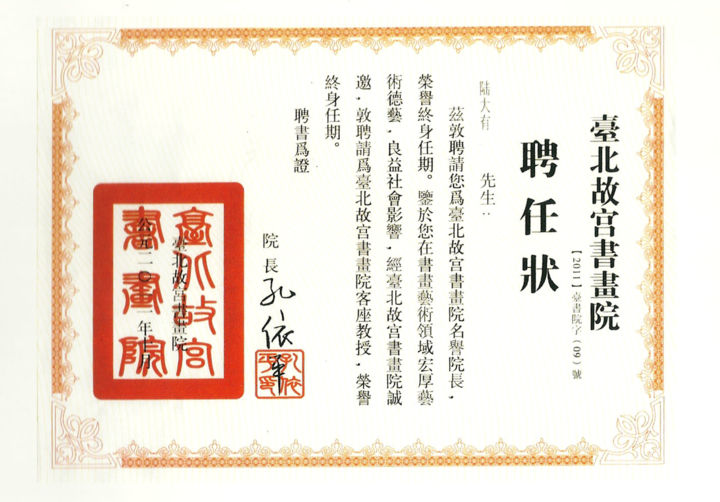 臺北故宫書畫院
【2011】臺書院字(09)號
聘任狀
陆大有 先生:
茲敦聘請您爲臺北故宫書畫院名譽院長,
榮譽終身任期。鑒於您在書畫藝術領域宏厚藝
術德藝,良益社會影響,經臺北故宫書畫院誠
邀,敦聘請爲臺北故宫書畫院客座教授,榮譽
終身任期。
聘書爲證
院長 孔依平
孔依平印
臺北故宫書畫院
公元二〇一一年七月
臺北故宫
書畫院